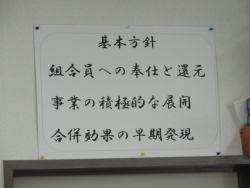 基本方針
組合員への奉仕と還元
事業の積極的な展開
合併効果の早期発現